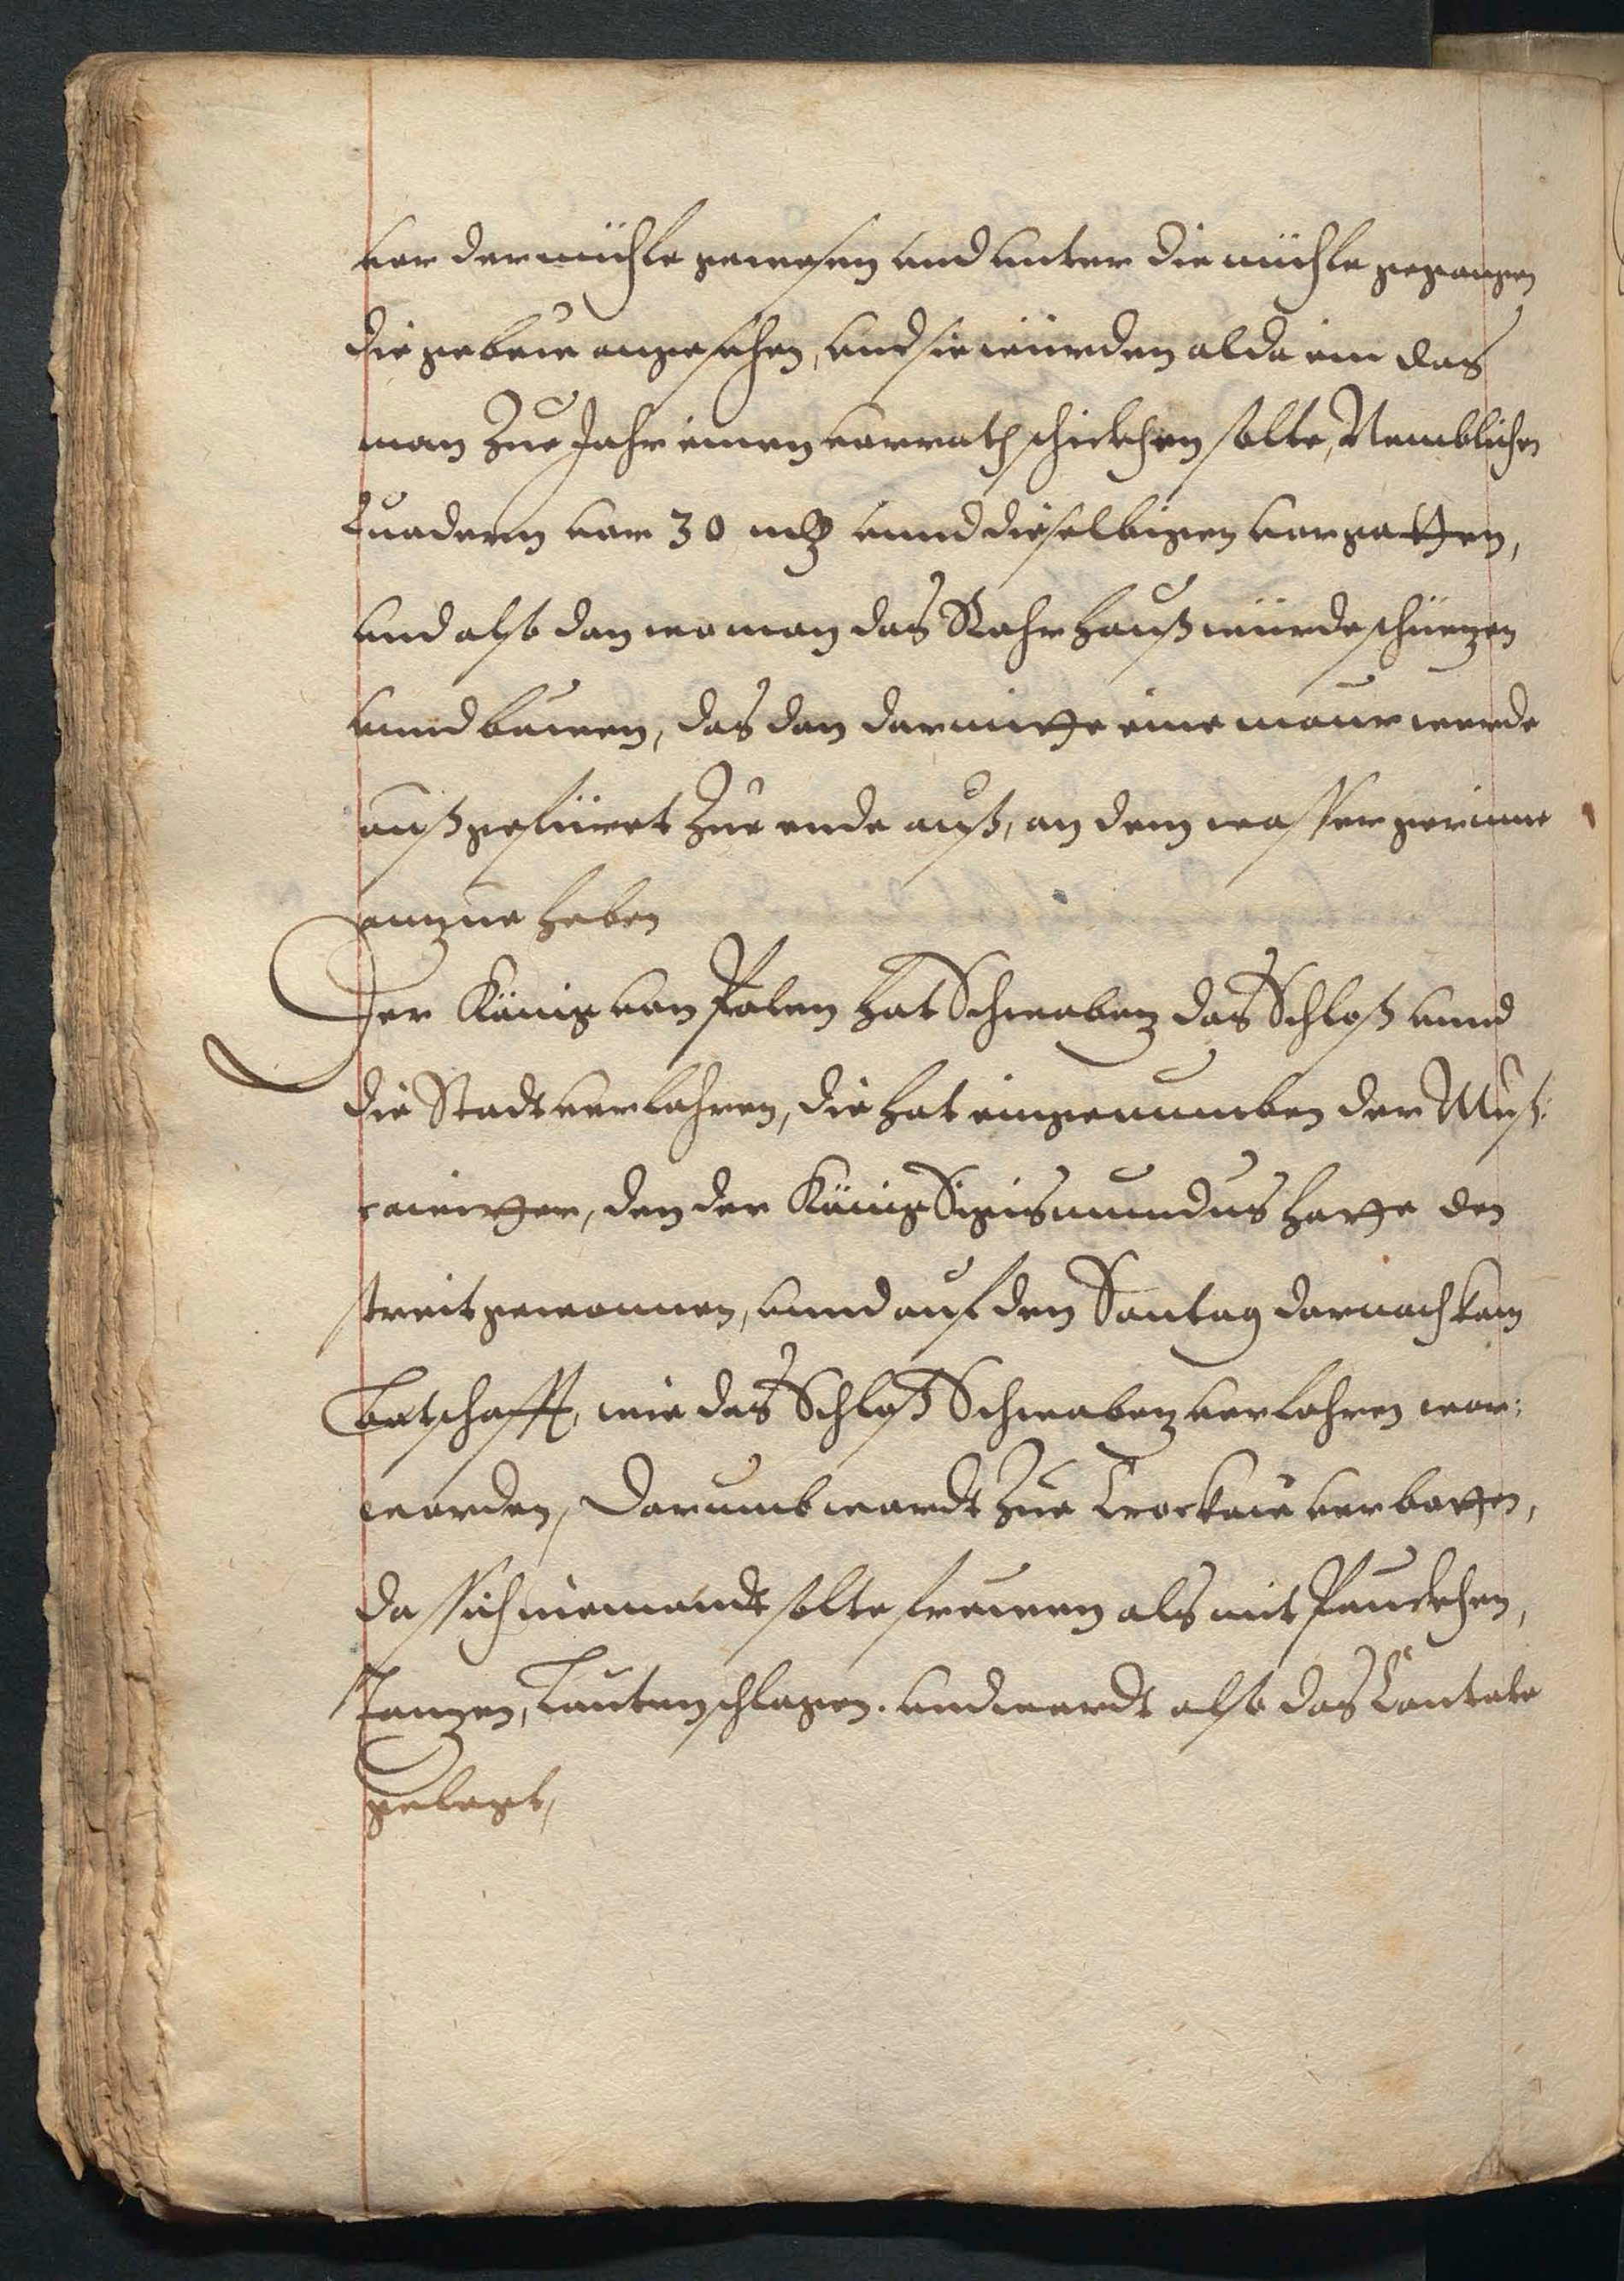 vor der mühle gewesen und unter die mühle gegangen
die gebeue angesehen, und sie würden alda ein das
man Zue Jahr einen vorrath schickhen solte, Nemblichen
Quadern vor 30 mk unnd dieselbigen vorgatten,
und also dan wo man das Rohrhauß würde schützen
unnd bauen, das dan darmitte eine maur werde
außgefüret Zue ende auß, an dem wasser gerinne
anzue heben
Der König von Polen hat Schwaben das Schloß unnd
die Stadt verlohren, die hat eingenumben der Muß:
cawitter, den der König Sigismundus hatte den
streit gewonnen, unnd auf den Sontag darnach kam
Botschafft, wie das Schloß Schwaben verlohren wor:
worden, Darumb wardt Zue Crockau verbotten,
da sich niemandt solte freuwen als mit Pauckhen,
Tanzen, Lautenschlagen. und wardt also das Cantate
gelegt,